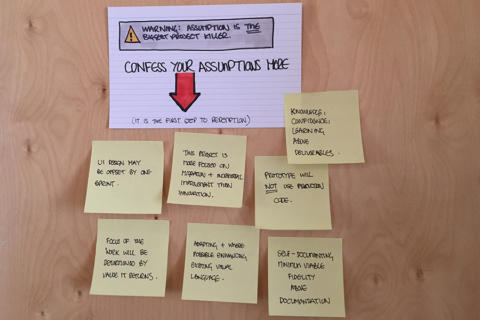 WARNING: ASSUMPTION IS THE
BIGGEST PROJECT KILLER.
CONFESS YOUR ASSUMPTIONS HERE
(IT IS THE FIRST STEP TO REDEMPTION)
KNOWLEDGE:
CONFIDENCE:
LEARNING
ABOVE
DELIVERABLES.
UI DESIGN MAY
BE OFFSET BY ONE
SPRINT.
THIS PROJECT IS
MORE FOCUSED ON
MIGRATION + INCREMENTAL
IMPROVEMENT THAN
INNOVATION.
PROTOTYPE WILL
NOT USE PRODUCTION
CODE.
FOCUS OF THE
WORK WILL BE
DETERMINED BY
VALUE IT RETURNS.
ADAPTING + WHERE
POSSIBLE ENHANCING
EXISTING VISUAL
LANGUAGE.
SELF-DOCUMENTING
MINIMUM VIABLE
FIDELITY
ABOVE
DOCUMENTATION